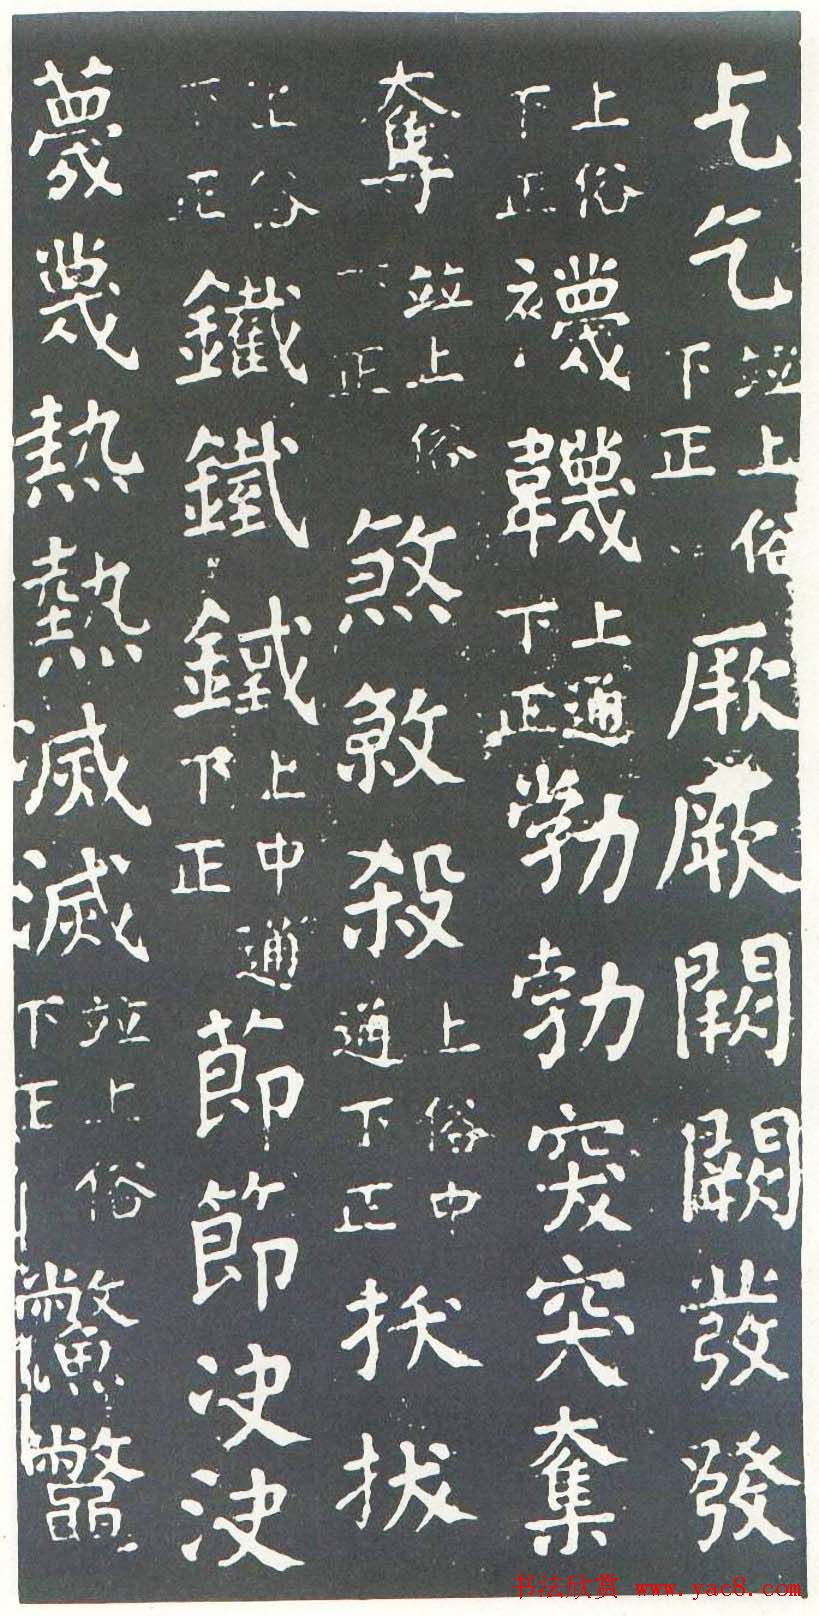 乞乞並上俗下正厥厥闕闕發發
上俗下正襪韈上通下正勃勃突突奪
奪並上俗下正煞煞殺上俗中通下正拔拔
上俗下正鐵鐵鐵上中通下正莭節决決
蔑蔑熱熱滅滅並上俗下正鱉鼈
书法欣赏 www.yac8.com